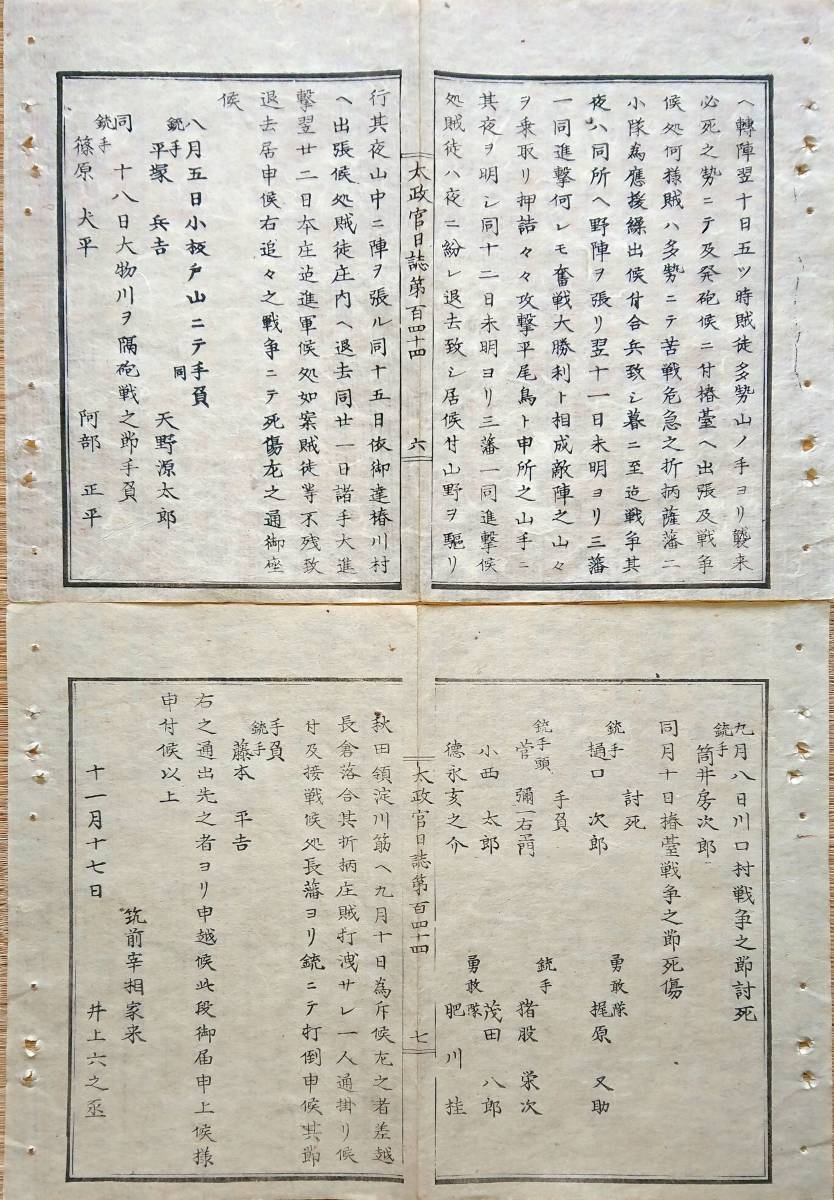 ヘ轉陣翌十日五ツ時賊徒多勢山ノ手ヨリ襲来
必死之勢ニテ及発砲候ニ付椿䑓ヘ出張及戦争
候処何様賊ハ多勢ニテ苦戦危急之折柄薩藩二
小隊為應援繰出候付合兵致シ暮ニ至迠戦争其
夜ハ同所ヘ野陣ヲ張リ翌十一日未明ヨリ三藩
一同進撃何レモ奮戦大勝利ト相成敵陣之山々
ヲ乗取リ押詰々々攻撃平尾鳥ト申所之山手ニ
其夜ヲ明シ同十二日未明ヨリ三藩一同進撃候
処賊徒ハ夜ニ紛レ退去致シ居候付山野ヲ駆リ
太政官日誌第百四十四
六
行其夜山中ニ陣ヲ張ル同十五日依御達椿川村
ヘ出張候処賊徒庄内ヘ退去同廿一日諸手大進
撃翌廿二日本庄迠進軍候処如案賊徒等不残致
退去居申候右追々之戦争ニテ死傷左之通御座
候
八月五日小板戸山ニテ手負
銃手
平塚 兵吉
同
天野源太郎
同 十八日大物川ヲ隔砲戦之節手負
銃手
篠原 犬平
阿部 正平
九月八日川口村戦争之節討死
銃手
筒井房次郎
同月十日椿䑓戦争之節死傷
討死
銃手
樋口 次郎
勇敢隊
梶原 又助
手負
銃手頭
菅 彌一右衛門
銃手
猪股 栄次
小西 太郎
茂田 八郎
徳永亥之介
勇敢隊
肥川 挂
太政官日誌第百四十四
七
秋田領淀川筋ヘ九月十日為斥候左之者差越
長倉落合其折柄庄賊打洩サレ一人通掛リ候
付及接戦候処長藩ヨリ銃ニテ打倒申候其節
手負
銃手
藤本 平吉
右之通出先之者ヨリ申越候此段御届申上候様
申付候以上
筑前宰相家来
十一月十七日 井上六之丞